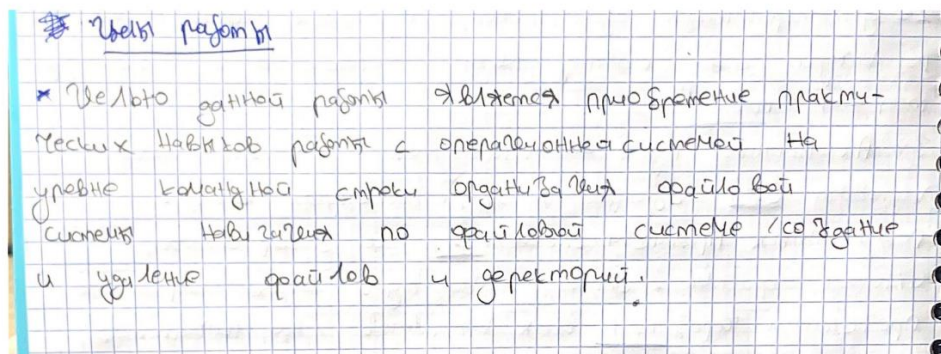 Цель работы
* Целью данной работы является приобретение практи-
ческих навыков работы с операционной системой на
уровне командной строки организация файловой
системы навигация по файловой системе, создание
и удаление файлов и деректорий.